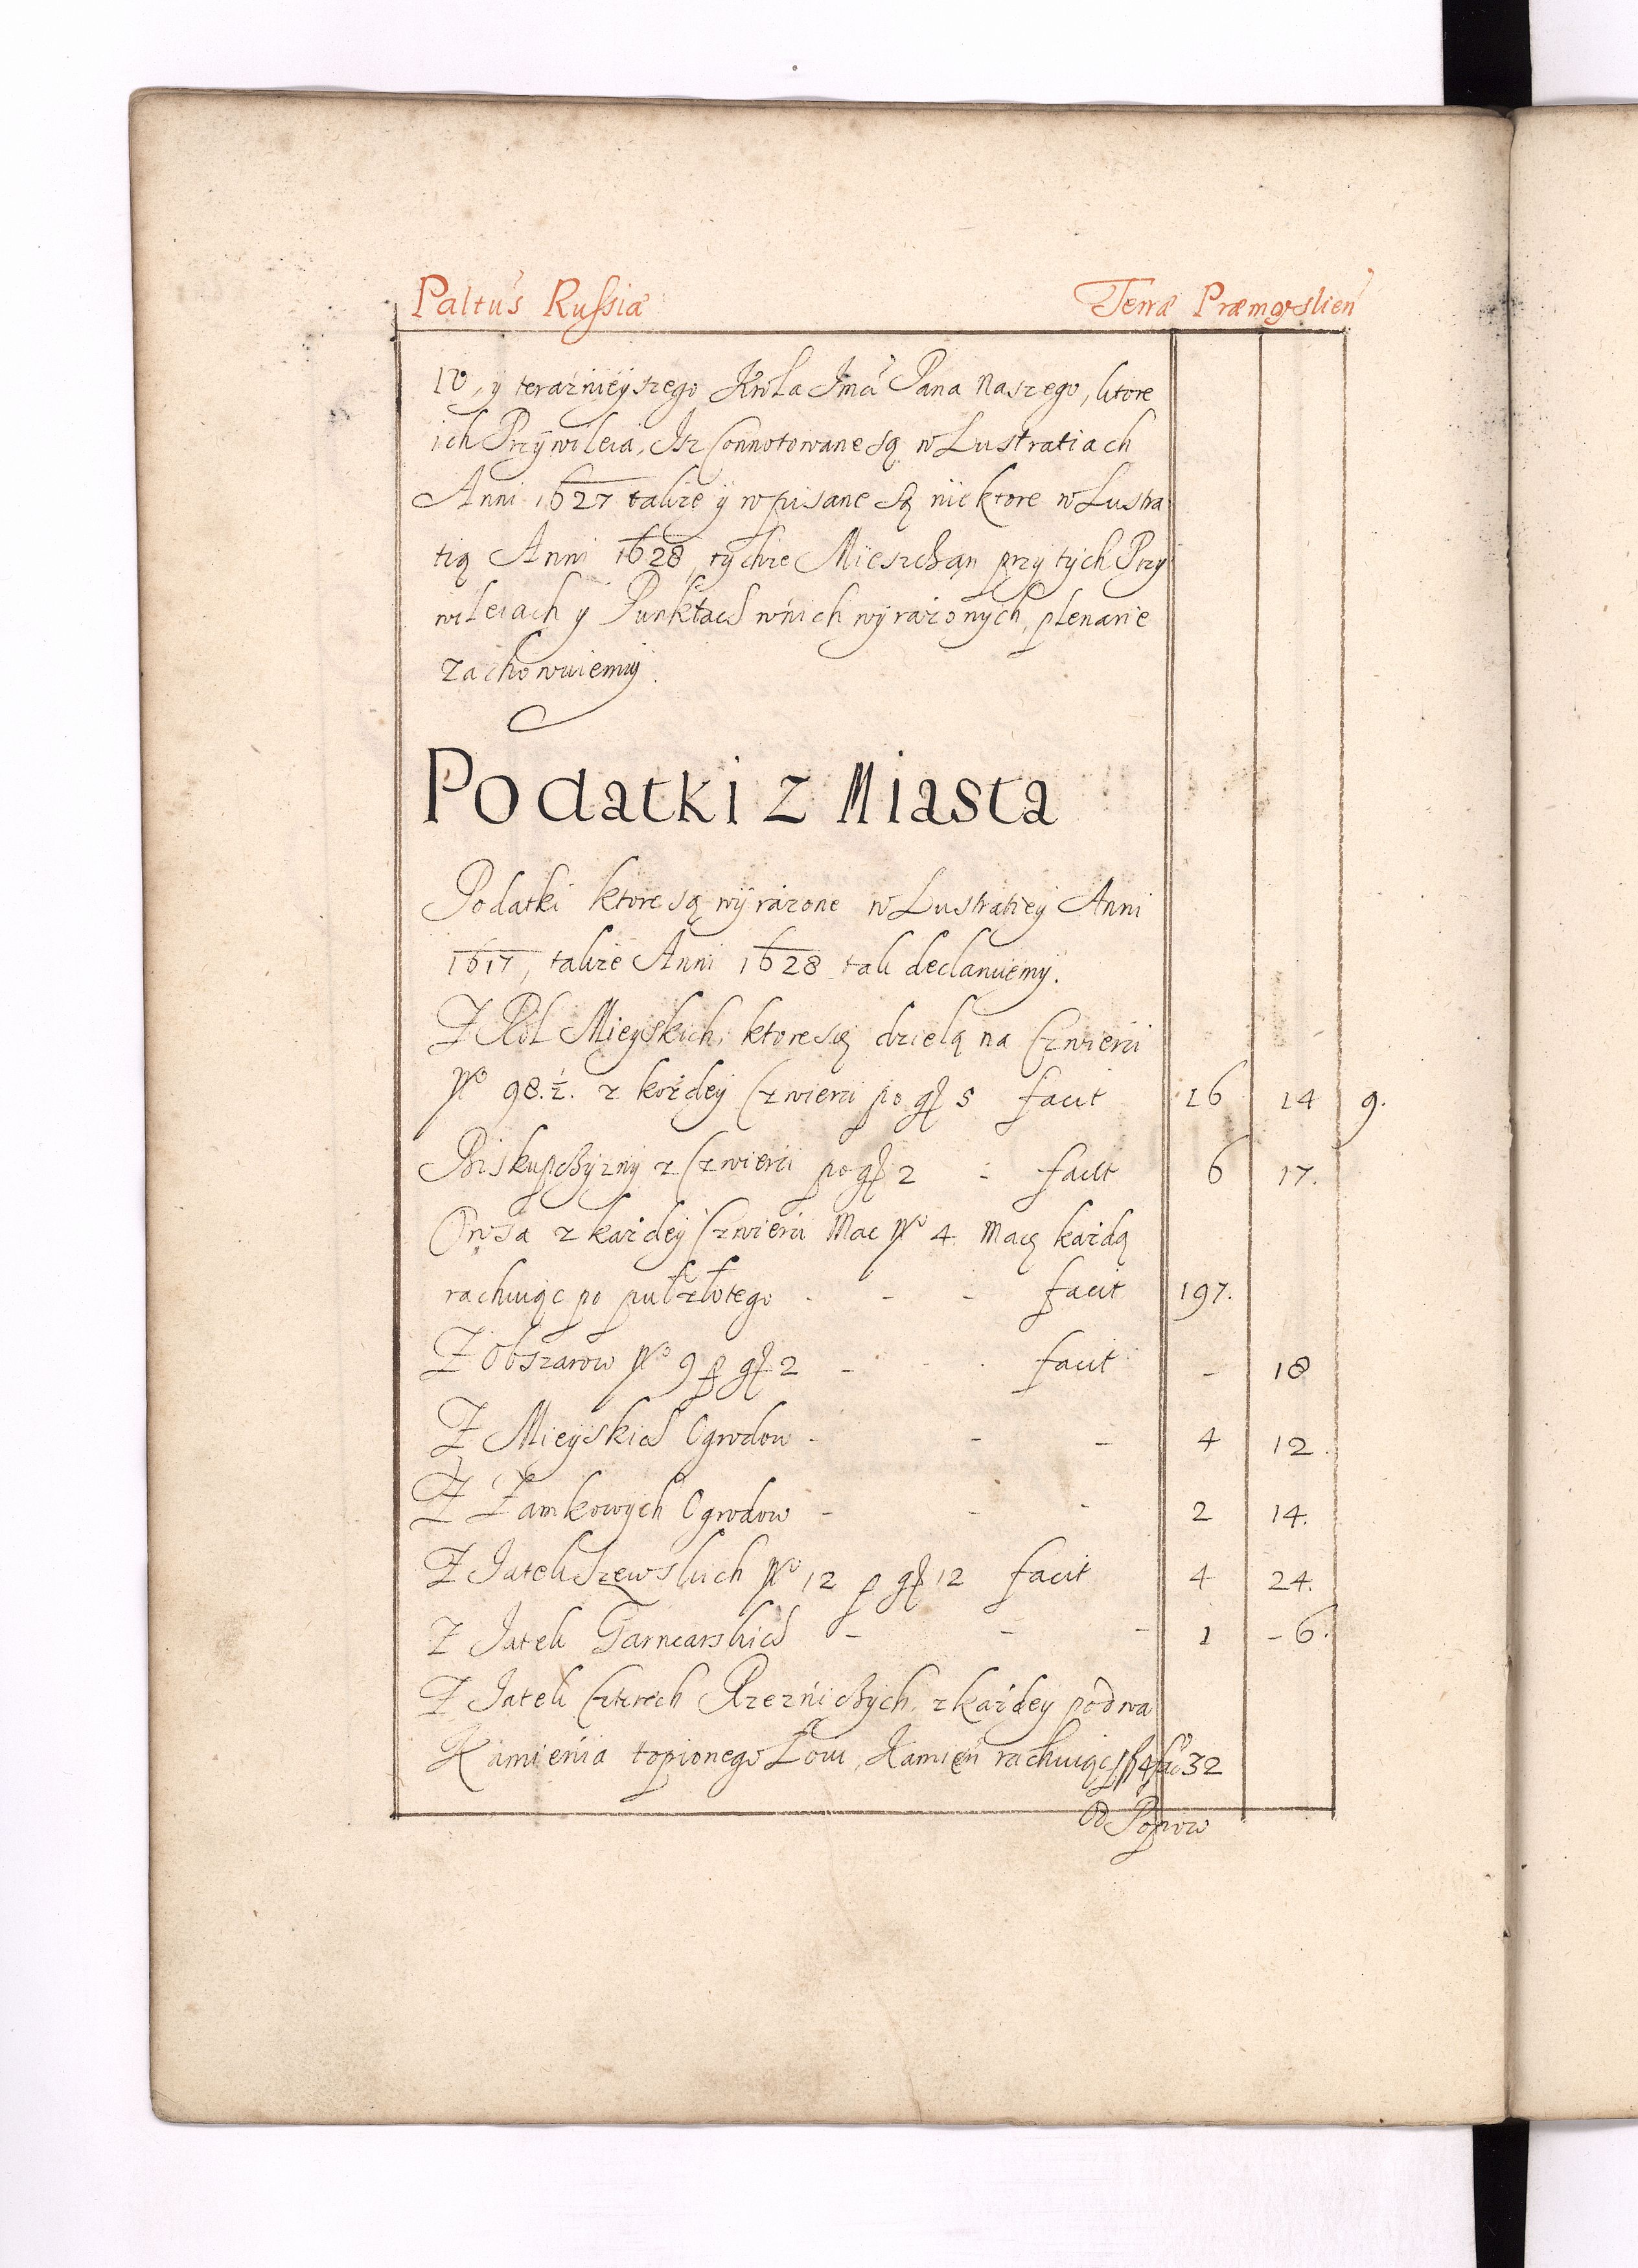 Paltus Russiæ Terræ Præmysslien
IV, y teraznieyszego Krola Jmci Pana Naszego, ktore
ich Przywileia, Isz Connotowane są w Lustratiach
Anni 1627 także y wpisane są niektore w Lustra
tią Anni 1628, tychże Mieszchan przy tych Przy
wileiach y Punktach w nich wyrażonych, plenarie
zachowuiemy.
Podatki z Miasta
Podatki ktore są wyrażone w Lustratiey Anni
1617, także Anni 1628 tak declaruiemy.
Z Rol Mieyskich, ktore są dzielą na Czwierci
No 98.½. z kożdey Czwierci po gr 5 facit 16 14 9.
Biskupczyzny z Czwierci po gr 2 - facit 6 17.
Owsa z każdey Czwierci Mac No 4. Macę każdą
rachuiąc po pułzłotego - - - facit 197.
Z Obszarow No 9 p gr 2 - - . facit - 18
Z Mieyskich Ogrodow - - - 4 12.
Z Zamkowych Ogrodow - - - 2 14.
Z Iatek Szewskich No 12 p gr 12 facit 4 24.
Z Iatek Garncarskich - - - 1 - 6.
Z Iatek Czterech Rzezniczych, z każdey po dwa
Kamienia topionego Łoiu, Kamień rachuiąc p f 4 fac 32
Od Popow